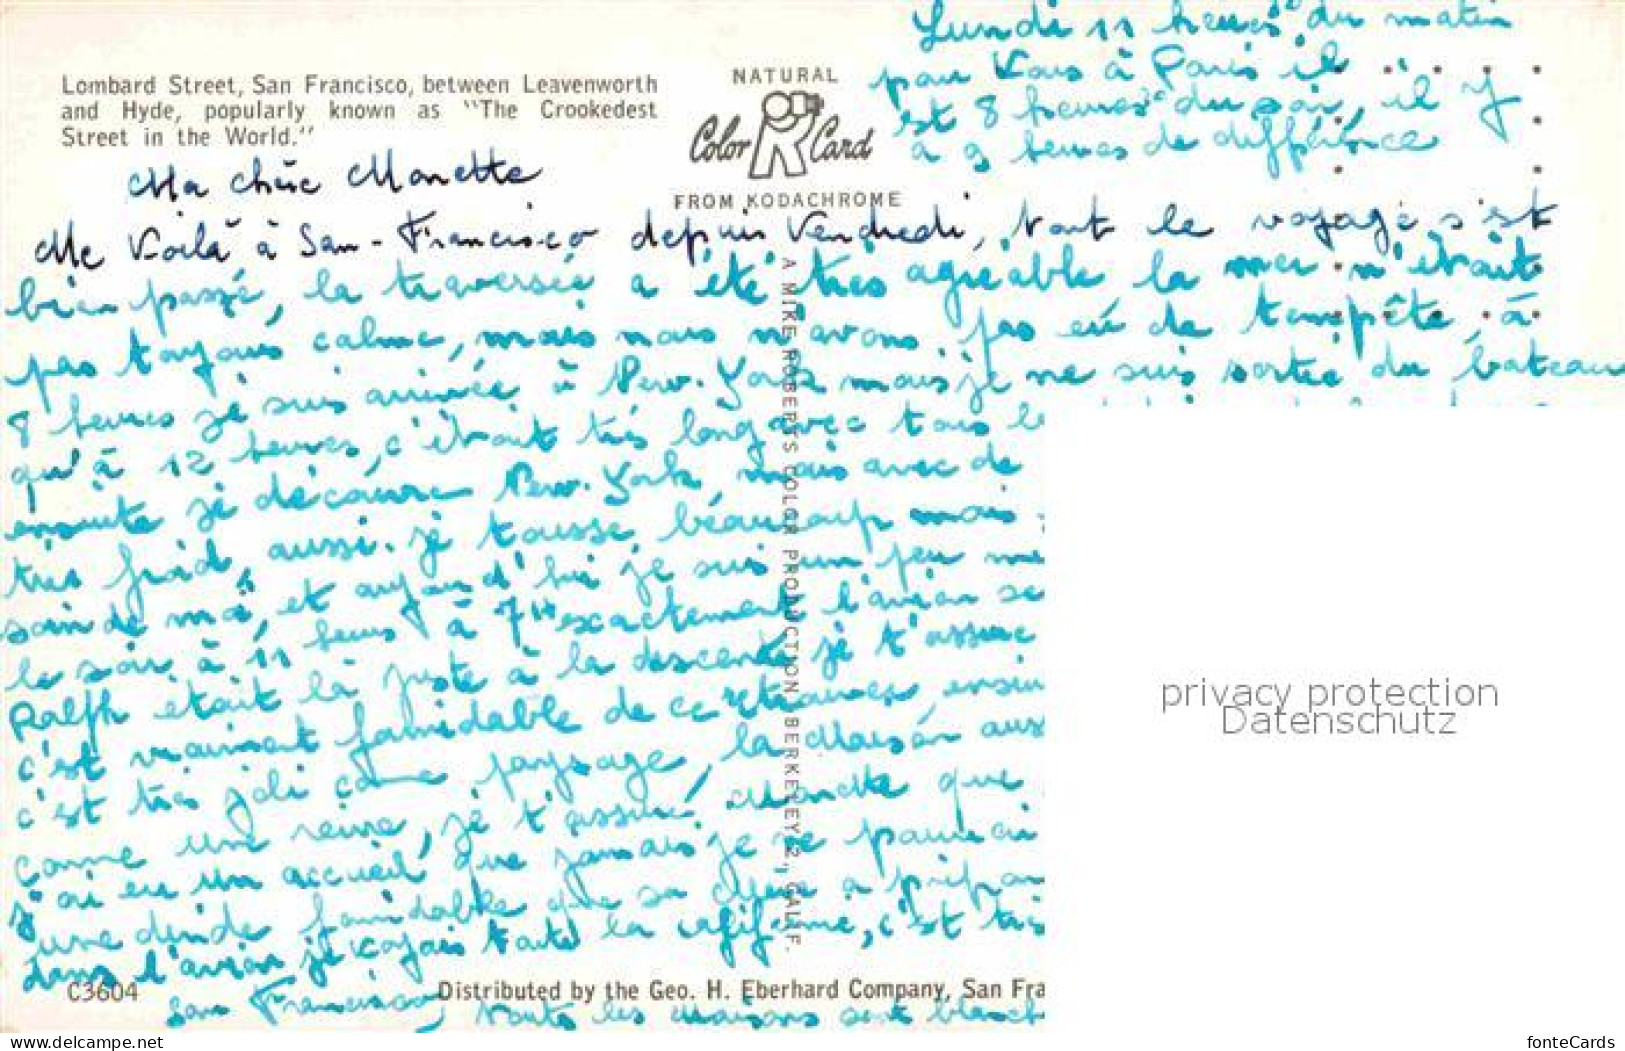 Lundi 11 heures du matin
pour Vous à Paris il
est 8 heures du soir, il y
a 9 heures de différence
Lombard Street, San Francisco, between Leavenworth
and Hyde, popularly known as "The Crookedest
Street in the World."
NATURAL
Color Card
FROM KODACHROME
A MIKE ROBERTS COLOR PRODUCTION, BERKELEY 2, CALIF.
Ma chère Monette
Me Voilà à San-Francisco depuis Vendredi, tout le voyage s'est
bien passé, la traversée a été très agréable la mer n'était
pas toujours calme, mais nous n'avons pas eu de tempête, à
8 heures je suis arrivée à New-York mais je ne suis sortie du bateau
qu'à 12 heures, c'était très long avec tous le
ensuite je découvre New-York mais avec de
très froid, aussi je tousse beaucoup mais
soin de moi, et aujourd'hui je suis un peu
le soir à 11 heures à 7H exactement l'avion se
Ralph était là juste à la descente je t'assure
c'est vraiment formidable de ce retrouver, ensui
c'est très joli comme paysage, la Maison aus
comme une reine, je t'assure Monette que
j'ai eu un accueil que jamais je ne pourrai
une dinde formidable que sa a prépar
dans l'avion je voyais toute la californie, c'est très
San Francisco, toute les maisons sont blanch
C3604
Distributed by the Geo. H. Eberhard Company, San Fra
privacy protection
Datenschutz
www.delcampe.net
fonteCards